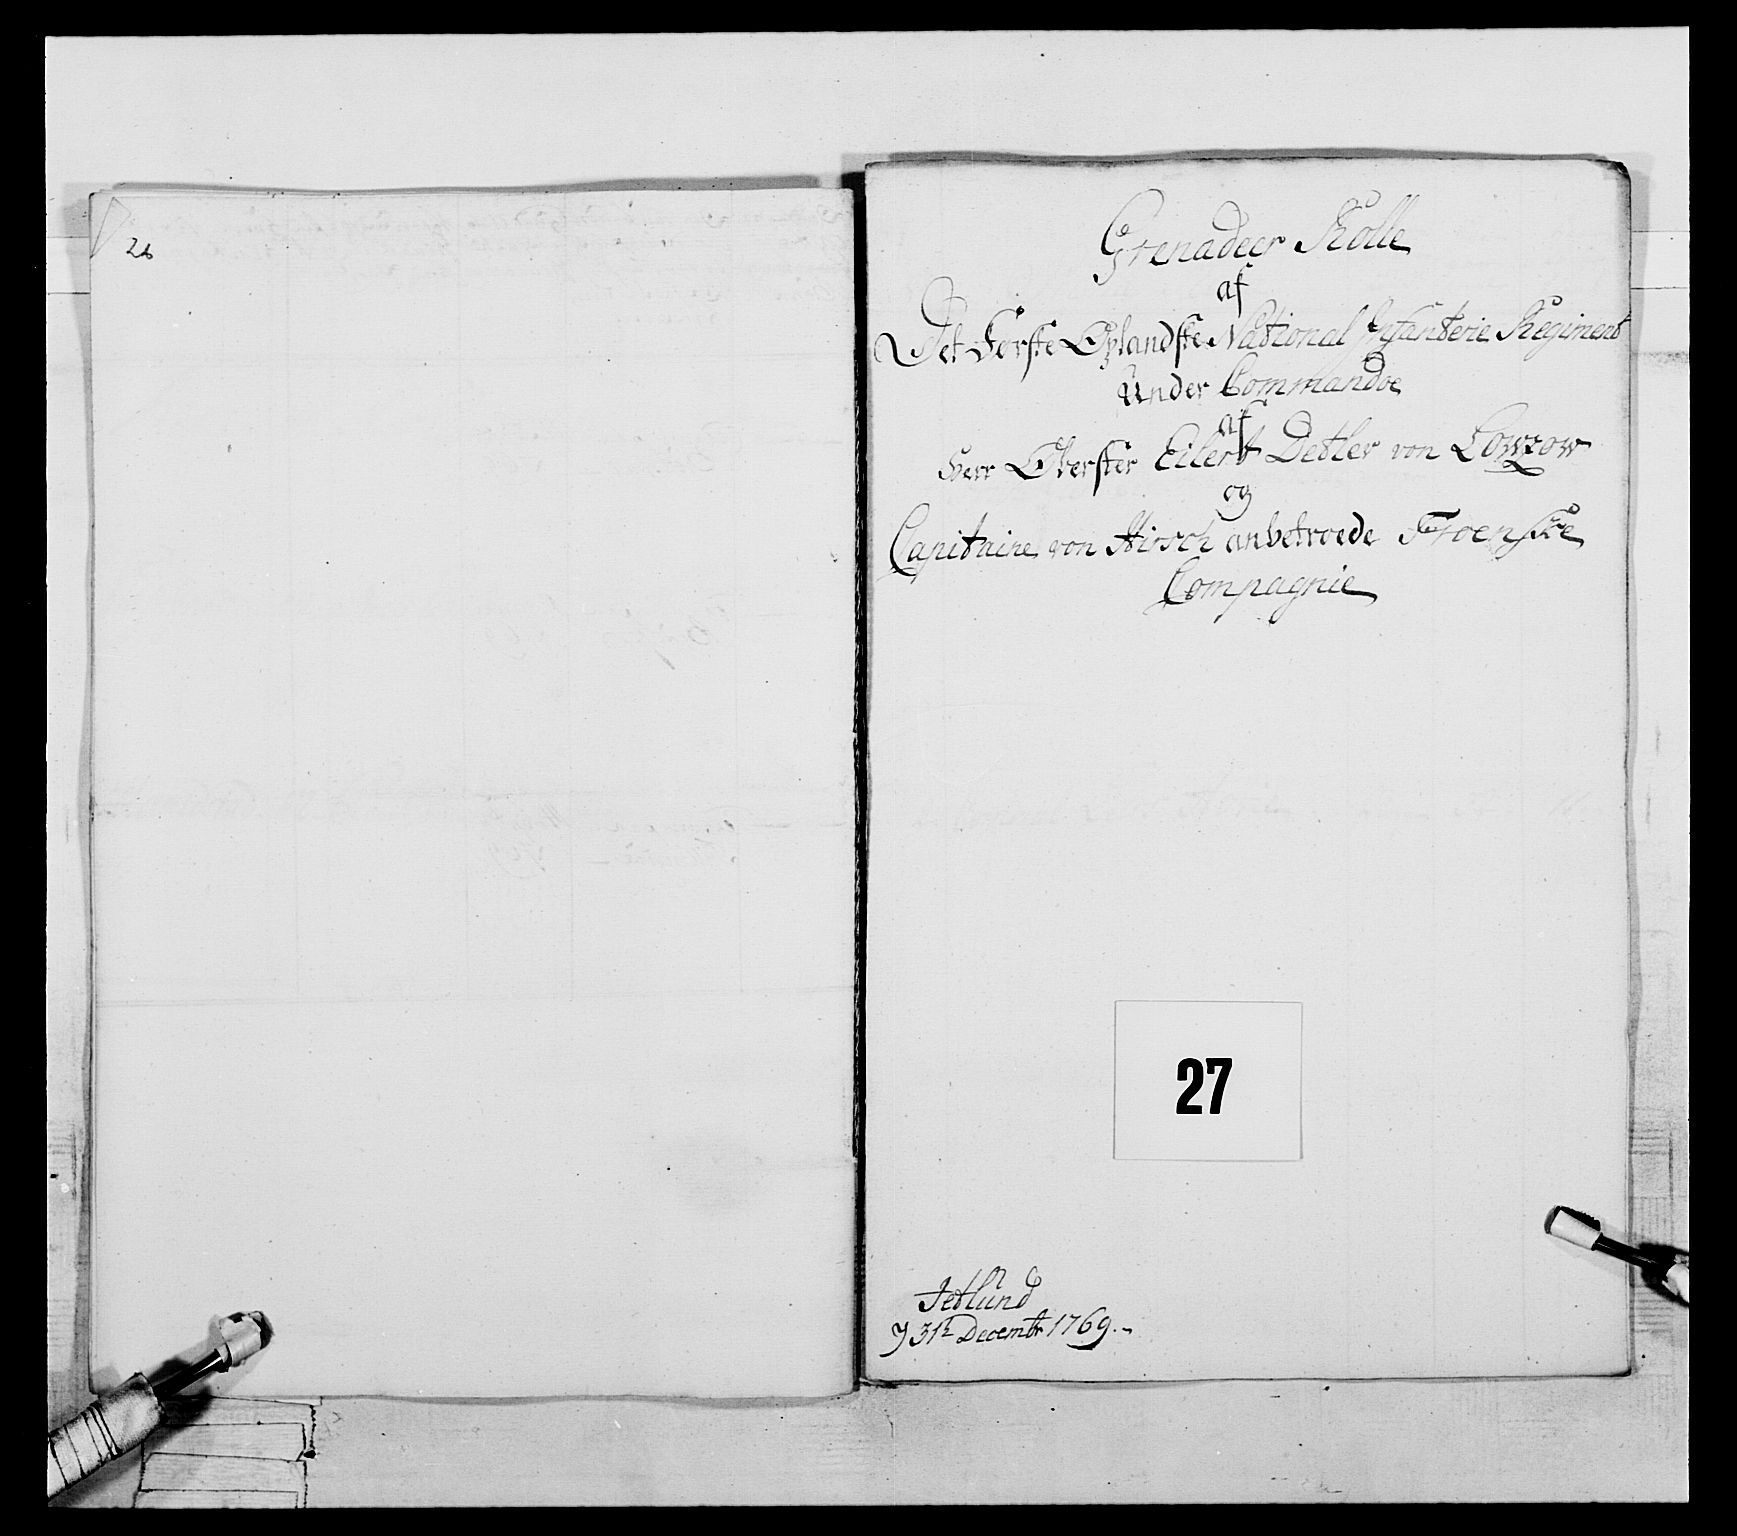 26
Grenadeer Rolle
af
Det Førske Oplandske National Infanterie Regiment
Under Commandoe
af
Herr Oberster Eilert Detler von Lowzow
og
Capitaine von Hirsch anbetroede Froenske
Compagnie
27
Jetlund
31t Decembr 1769.